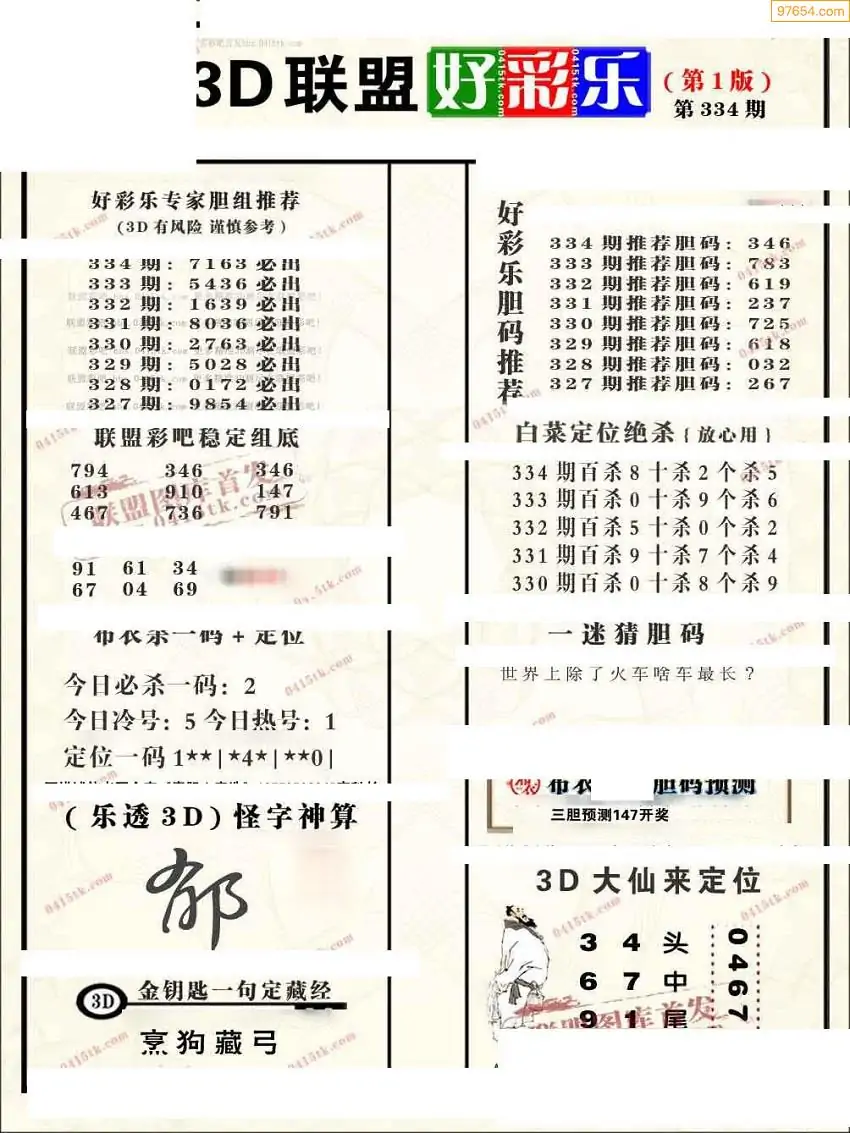 97654.com
3D联盟好彩乐
(第1版)
第334期
好彩乐专家胆组推荐
(3D有风险 谨慎参考)
334期: 7163必出
333期: 5436必出
332期: 1639必出
331期: 8036必出
330期: 2763必出
329期: 5028必出
328期: 0172必出
327期: 9854必出
联盟彩吧稳定组底
794 346 346
613 910 147
467 736 791
联盟图库首发
0415tk.com
91 61 34
67 04 69
布衣杀一码+定位
今日必杀一码: 2
今日冷号: 5 今日热号: 1
定位一码 1**|*4*|**0|
(乐透3D)怪字神算
郁
3D 金钥匙一句定藏经
烹狗藏弓
好彩乐胆码推荐
334期推荐胆码: 346
333期推荐胆码: 783
332期推荐胆码: 619
331期推荐胆码: 237
330期推荐胆码: 725
329期推荐胆码: 618
328期推荐胆码: 032
327期推荐胆码: 267
白菜定位绝杀{放心用}
334期百杀8十杀2个杀5
333期百杀0十杀9个杀6
332期百杀5十杀0个杀2
331期百杀9十杀7个杀4
330期百杀0十杀8个杀9
一迷猜胆码
世界上除了火车啥车最长?
布衣 胆码预测
三胆预测147开奖
3D大仙来定位
3 4 头
6 7 中
9 1 尾
0467
联盟图库首发